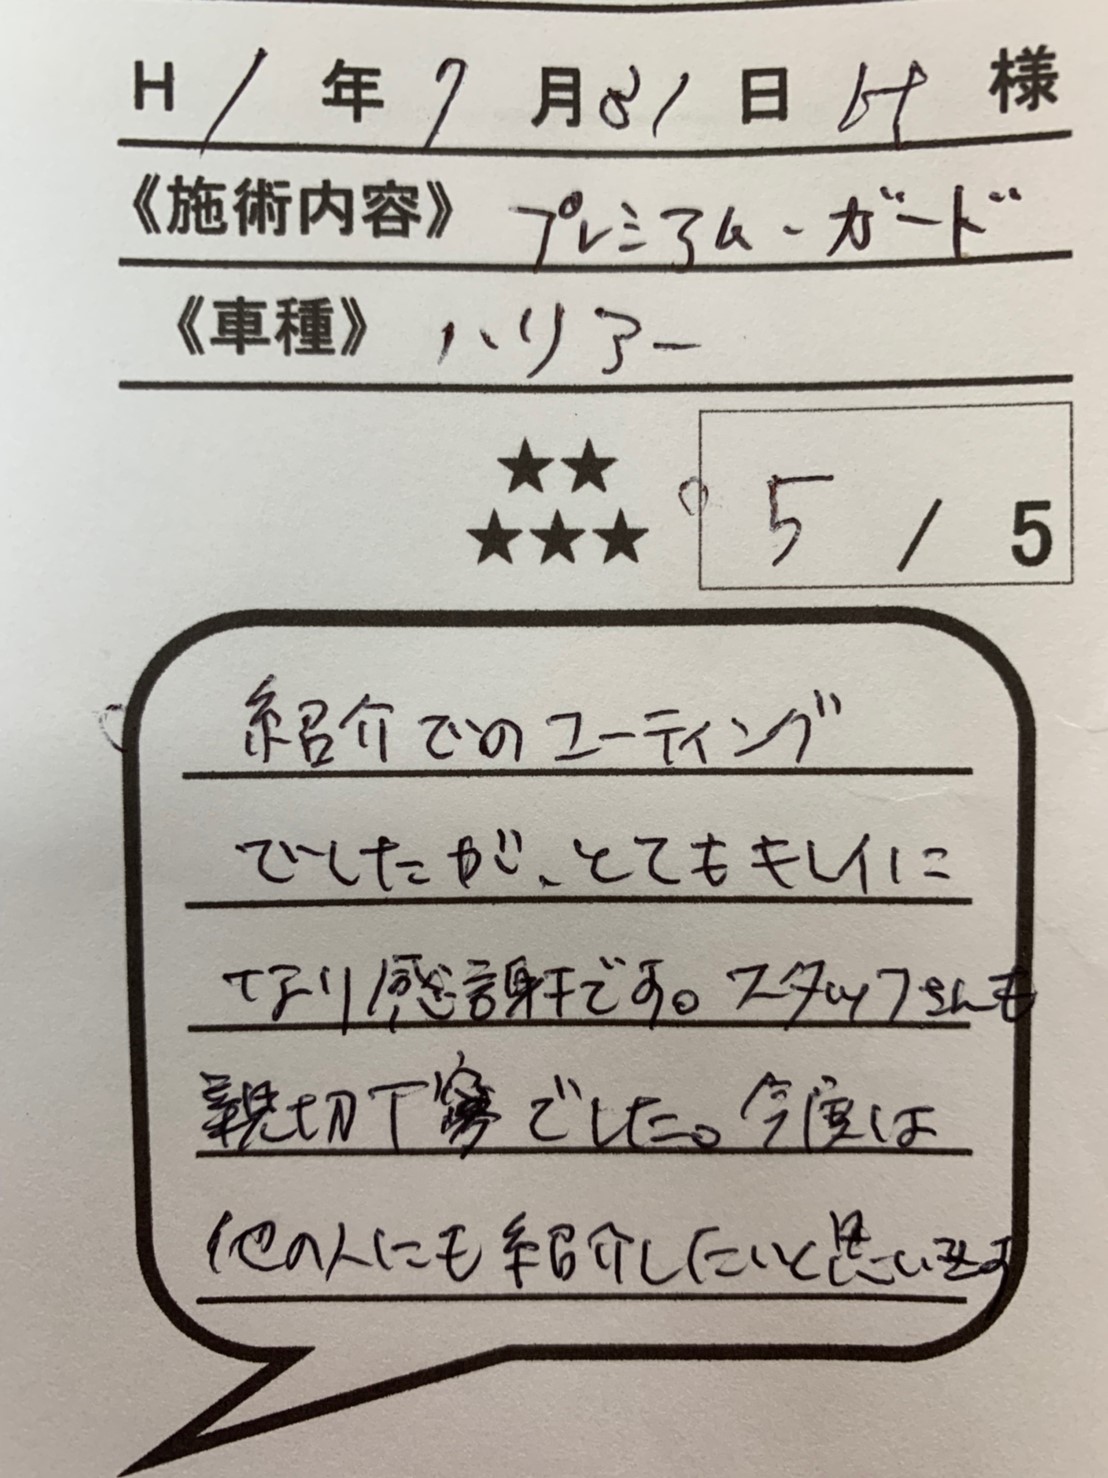 H 1 年 7 月 31 日 H 様
《施術内容》 プレミアム・ガード
《車種》 ハリアー
★★
★★★
5 / 5
紹介でのコーティング
でしたが、とてもキレイに
なり感謝です。スタッフさんも
親切丁寧でした。今度は
他の人にも紹介したいと思います